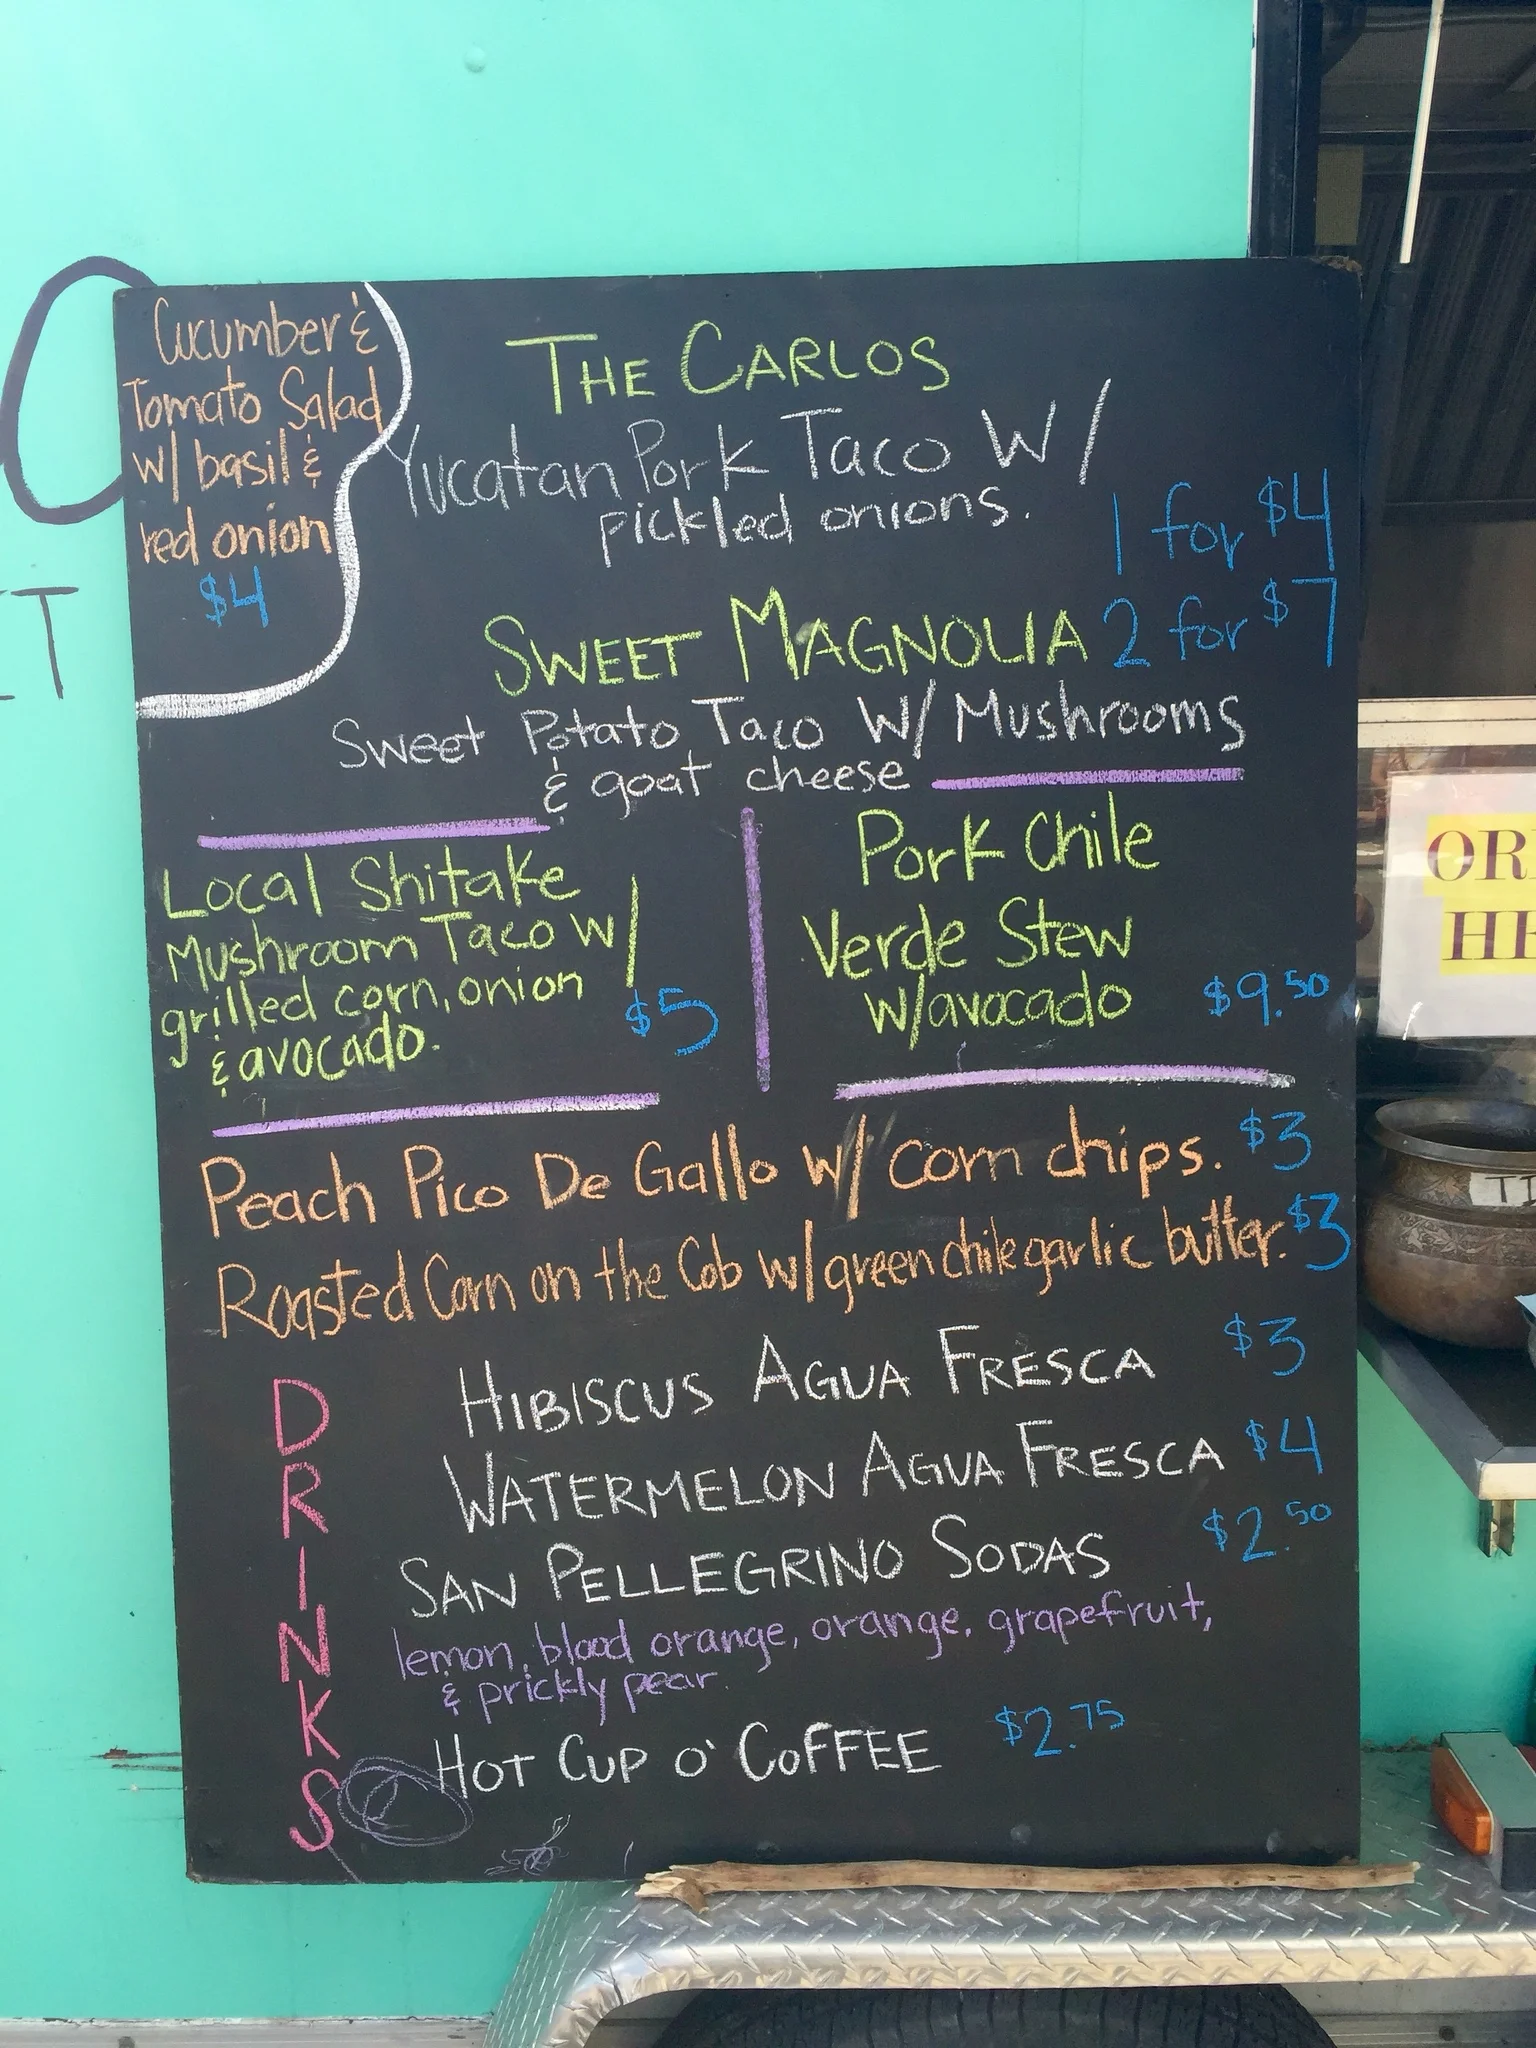 Cucumber &
Tomato Salad
w/ basil &
red onion
$4
THE CARLOS
Yucatan Pork Taco W/
pickled onions.
1 for $4
2 for $7
SWEET MAGNOLIA
Sweet Potato Taco W/ Mushrooms
& goat cheese
Local Shitake
Mushroom Taco W/
grilled corn, onion
& avocado.
$5
Pork Chile
Verde Stew
w/avocado $9.50
Peach Pico De Gallo w/ corn chips. $3
Roasted Corn on the Cob w/ green chile garlic butter. $3
DRINKS
HIBISCUS AGUA FRESCA $3
WATERMELON AGUA FRESCA $4
SAN PELLEGRINO SODAS $2.50
lemon, blood orange, orange, grapefruit,
& prickly pear.
HOT CUP O' COFFEE $2.75